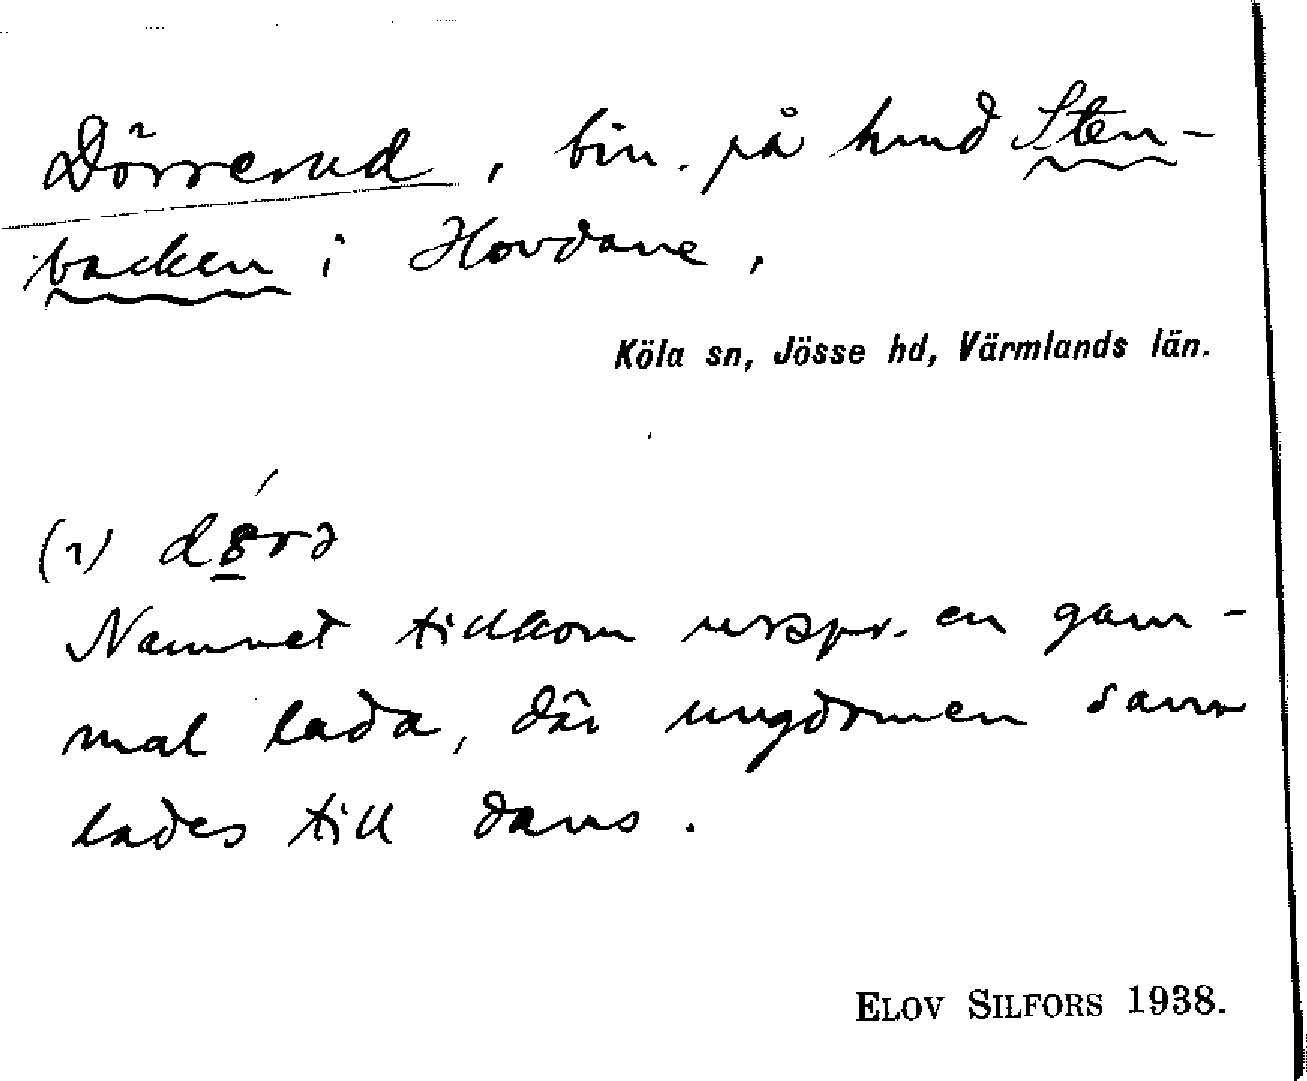 Dörrerud, bin. på hmd Sten-
backen i Hovdane,
Köla sn, Jösse hd, Värmlands län.
(2)
Namnet tillkom urspr. en gam-
mal lada, där ungdomen sam
lades till dans.
ELOV SILFORS 1938.